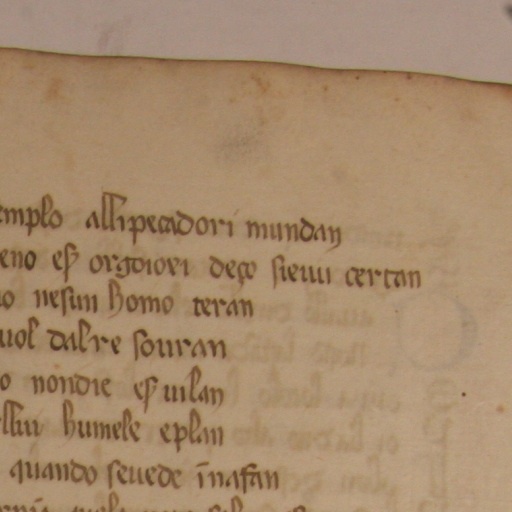 emplo alli pecadori mundan
eno eſ orgoiori deço ſievui certan
o neſun homo teran
uol dalre ſouran
o nondie eſ uilan
llui humele eplan
quando ſeuede īnafan